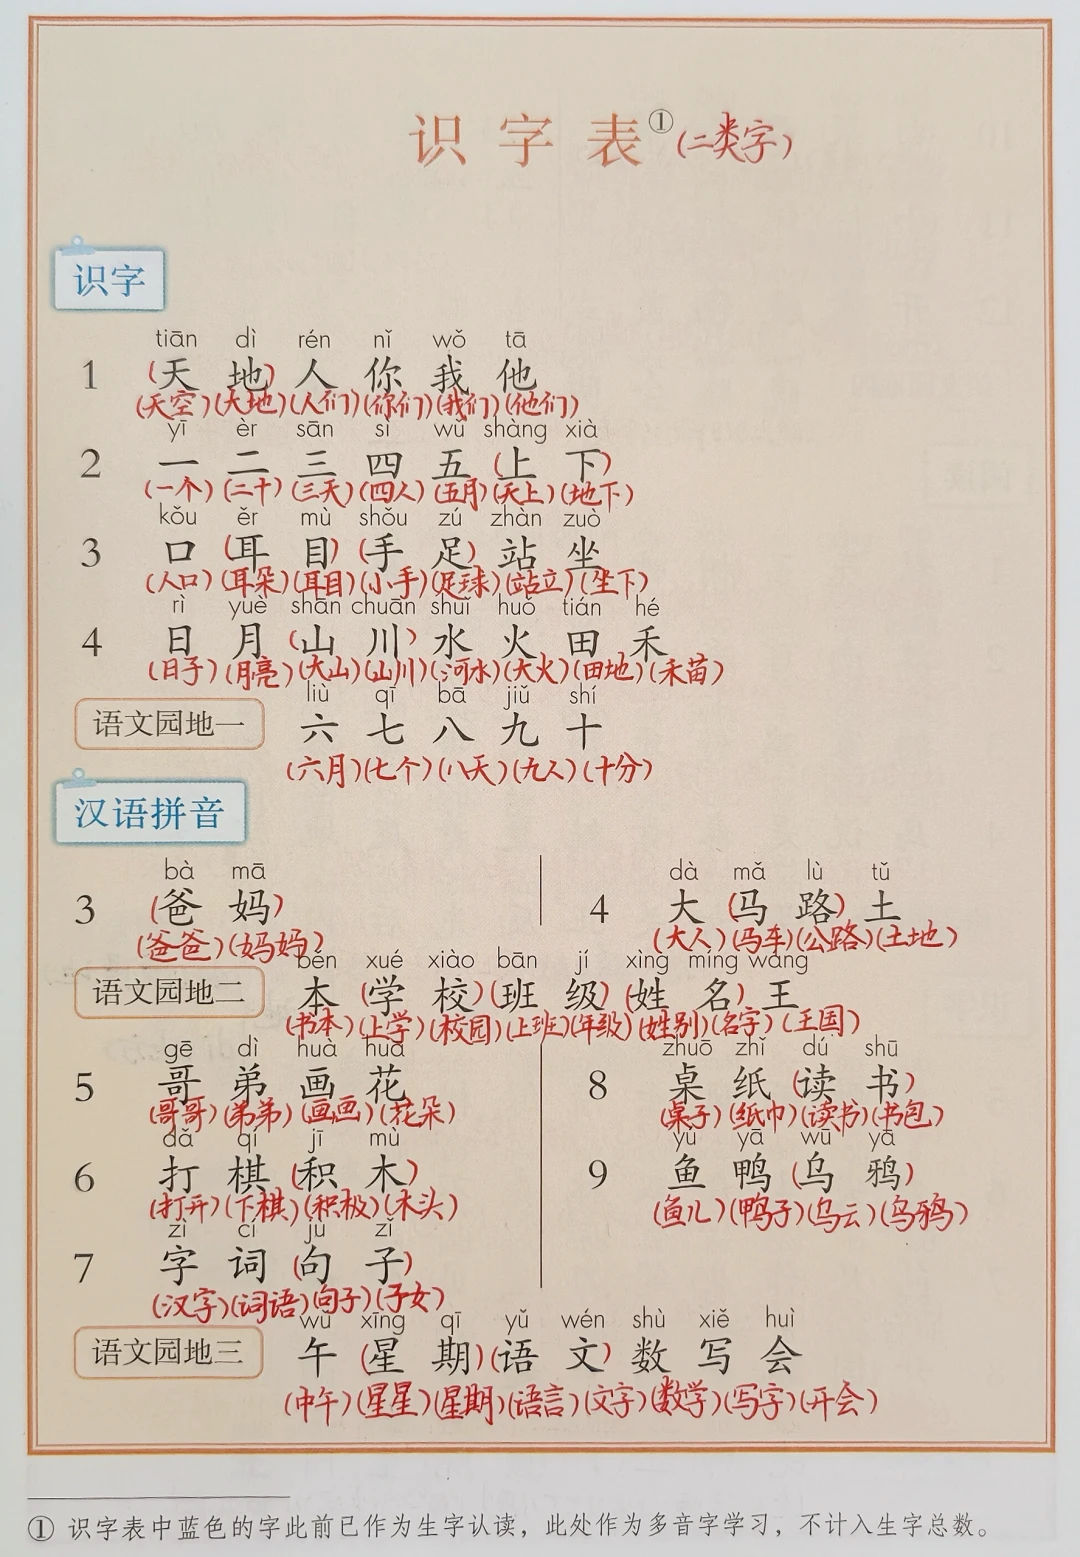 识字表①(二类字)
识字
tiān dì rén nǐ wǒ tā
1 (天 地) 人 你 我 他
(天空)(大地)(人们)(你们)(我们)(他们)
yī èr sān sì wǔ shàng xià
2 一 二 三 四 五 (上 下)
(一个)(二十)(三天)(四人)(五月)(天上)(地下)
kǒu ěr mù shǒu zú zhàn zuò
3 口 (耳 目) (手 足) 站 坐
(人口)(耳朵)(耳目)(小手)(足球)(站立)(坐下)
rì yuè shān chuān shuǐ huǒ tián hé
4 日 月 (山 川) 水 火 田 禾
(日子)(月亮)(大山)(山川)(河水)(大火)(田地)(禾苗)
liù qī bā jiǔ shí
语文园地一 六 七 八 九 十
(六月)(七个)(八天)(九人)(十分)
汉语拼音
bà mā
3 (爸 妈)
(爸爸)(妈妈)
dà mǎ lù tǔ
4 大 (马 路) 土
(大人)(马车)(公路)(土地)
běn xué xiào bān jí xìng míng wáng
语文园地二 本 (学 校)(班 级) (姓 名) 王
(书本)(上学)(校园)(上班)(年级)(姓别)(名字)(王国)
gē dì huà huā
5 哥 弟 画 花
(哥哥)(弟弟)(画画)(花朵)
zhuō zhǐ dú shū
8 桌 纸 (读 书)
(桌子)(纸巾)(读书)(书包)
dǎ qí jī mù
6 打 棋 (积 木)
(打开)(下棋)(积极)(木头)
yú yā wū yā
9 鱼 鸭 (乌 鸦)
(鱼儿)(鸭子)(乌云)(乌鸦)
zì cí jù zǐ
7 字 词 (句 子)
(汉字)(词语)(句子)(子女)
wǔ xīng qī yǔ wén shù xiě huì
语文园地三 午 (星 期)(语 文) 数 写 会
(中午)(星星)(星期)(语言)(文字)(数学)(写字)(开会)
① 识字表中蓝色的字此前已作为生字认读，此处作为多音字学习，不计入生字总数。